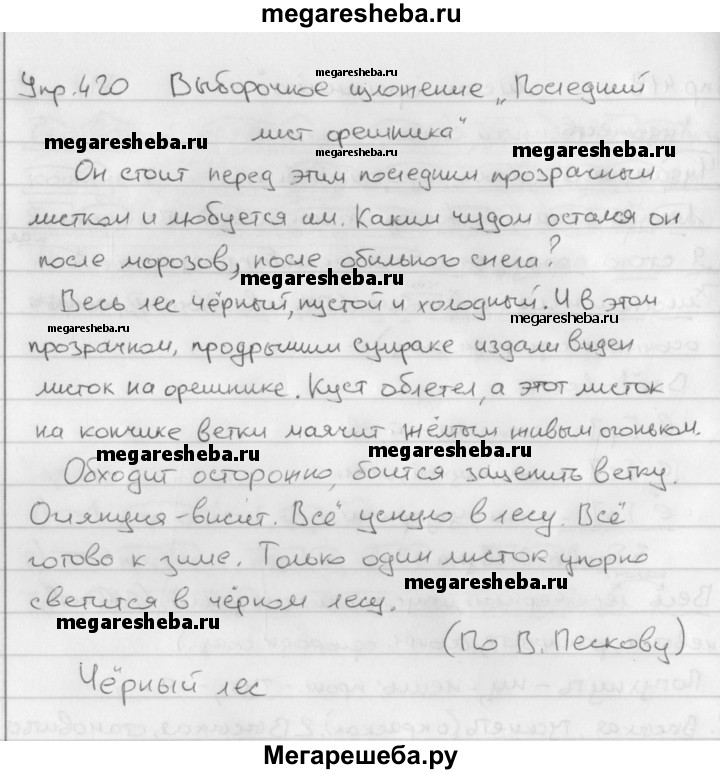 megaresheba.ru
megaresheba.ru
Упр.420 Выборочное изложение „Последний
megaresheba.ru
лист орешника“
megaresheba.ru
megaresheba.ru
megaresheba.ru
Он стоит перед этим последним прозрачным
листком и любуется им. Каким чудом остался он
после морозов, после обильного снега?
megaresheba.ru
Весь лес чёрный, пустой и холодный. И в этом
megaresheba.ru
megaresheba.ru
прозрачном, продрогшим сумраке издали виден
листок на орешнике. Куст облетел, а этот листок
на кончике ветки маячит жёлтым живым огоньком.
megaresheba.ru
megaresheba.ru
Обходит осторожно, боится зацепить ветку.
Оглянулся - висит. Всё уснуло в лесу. Всё
готово к зиме. Только один листок упорно
megaresheba.ru
светится в чёрном лесу.
megaresheba.ru
(По В. Пескову)
Чёрный лес
Мегарешеба.ру